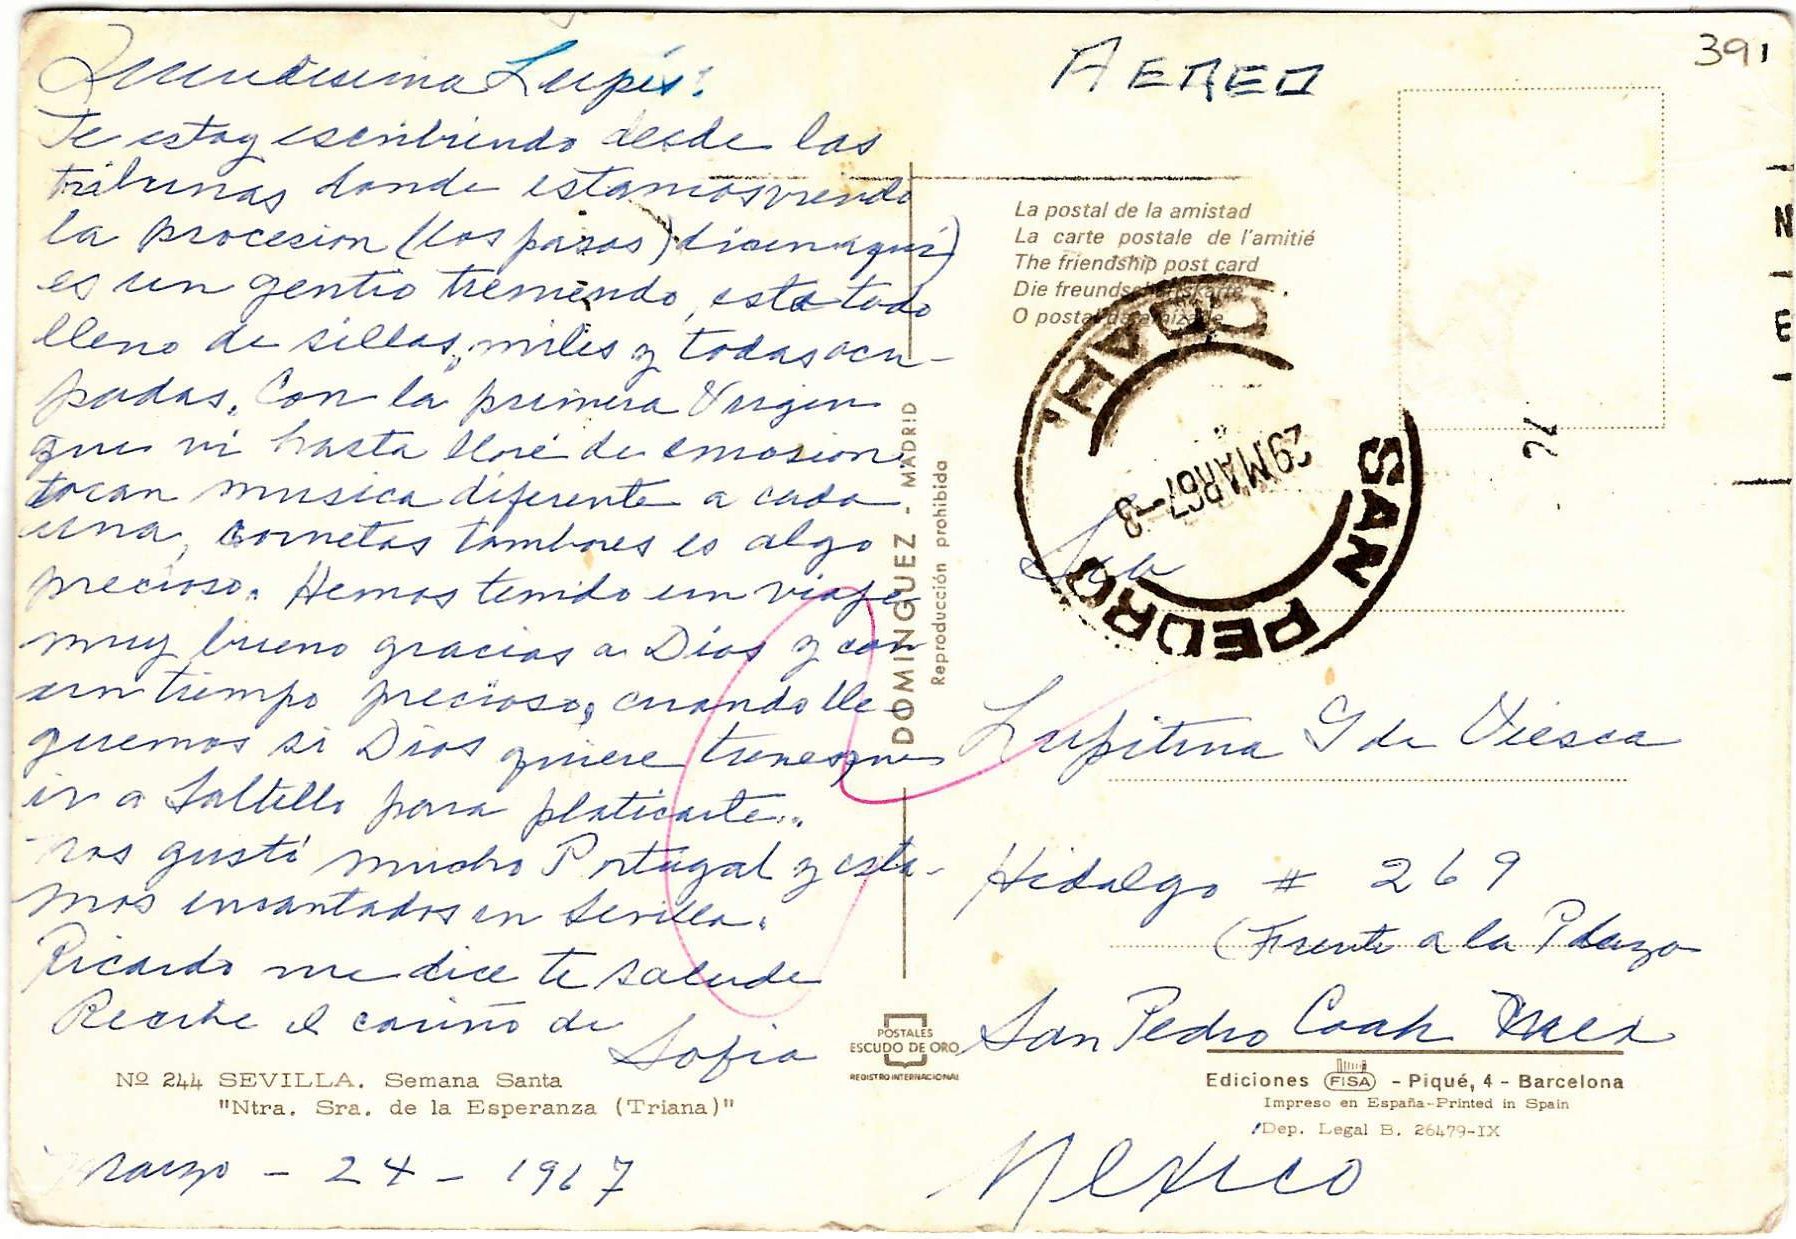 Queridisima Lupis:
Te estoy escribiendo desde las
tribunas donde estamos viendo
la procesion (los pasos) dicen aqui)
es un gentio tremendo, esta todo
lleno de sillas, miles y todas ocu-
padas. Con la primera Virgen
que vi hasta lloré de emosion
tocan musica diferente a cada
una, cornetas tambores es algo
precioso. Hemos tenido un viaje
muy bueno gracias a Dios y con
un tiempo precioso, cuando lle-
guemos si Dios quiere tienes que
ir a Saltillo para platicarte..
nos gustó mucho Portugal y esta-
mos encantados en Sevilla.
Ricardo me dice te salude
Recibe el cariño de
Sofia
Nº 244 SEVILLA. Semana Santa
"Ntra. Sra. de la Esperanza (Triana)"
Marzo - 24 - 1967
DOMINGUEZ - MADRID
Reproducción prohibida
POSTALES
ESCUDO DE ORO
REGISTRO INTERNACIONAL
AEREO
391
La postal de la amistad
La carte postale de l'amitié
The friendship post card
Die freundschaftskarte
O postal da amizade
SAN PEDRO
COAH.
29 MAR 67-8
N
E
Sra
Lupitina G de Viesca
Hidalgo # 269
(Frente a la Plaza
San Pedro Coah
Ediciones FISA - Piqué, 4 - Barcelona
Impreso en España-Printed in Spain
Dep. Legal B. 26479-IX
Mexico